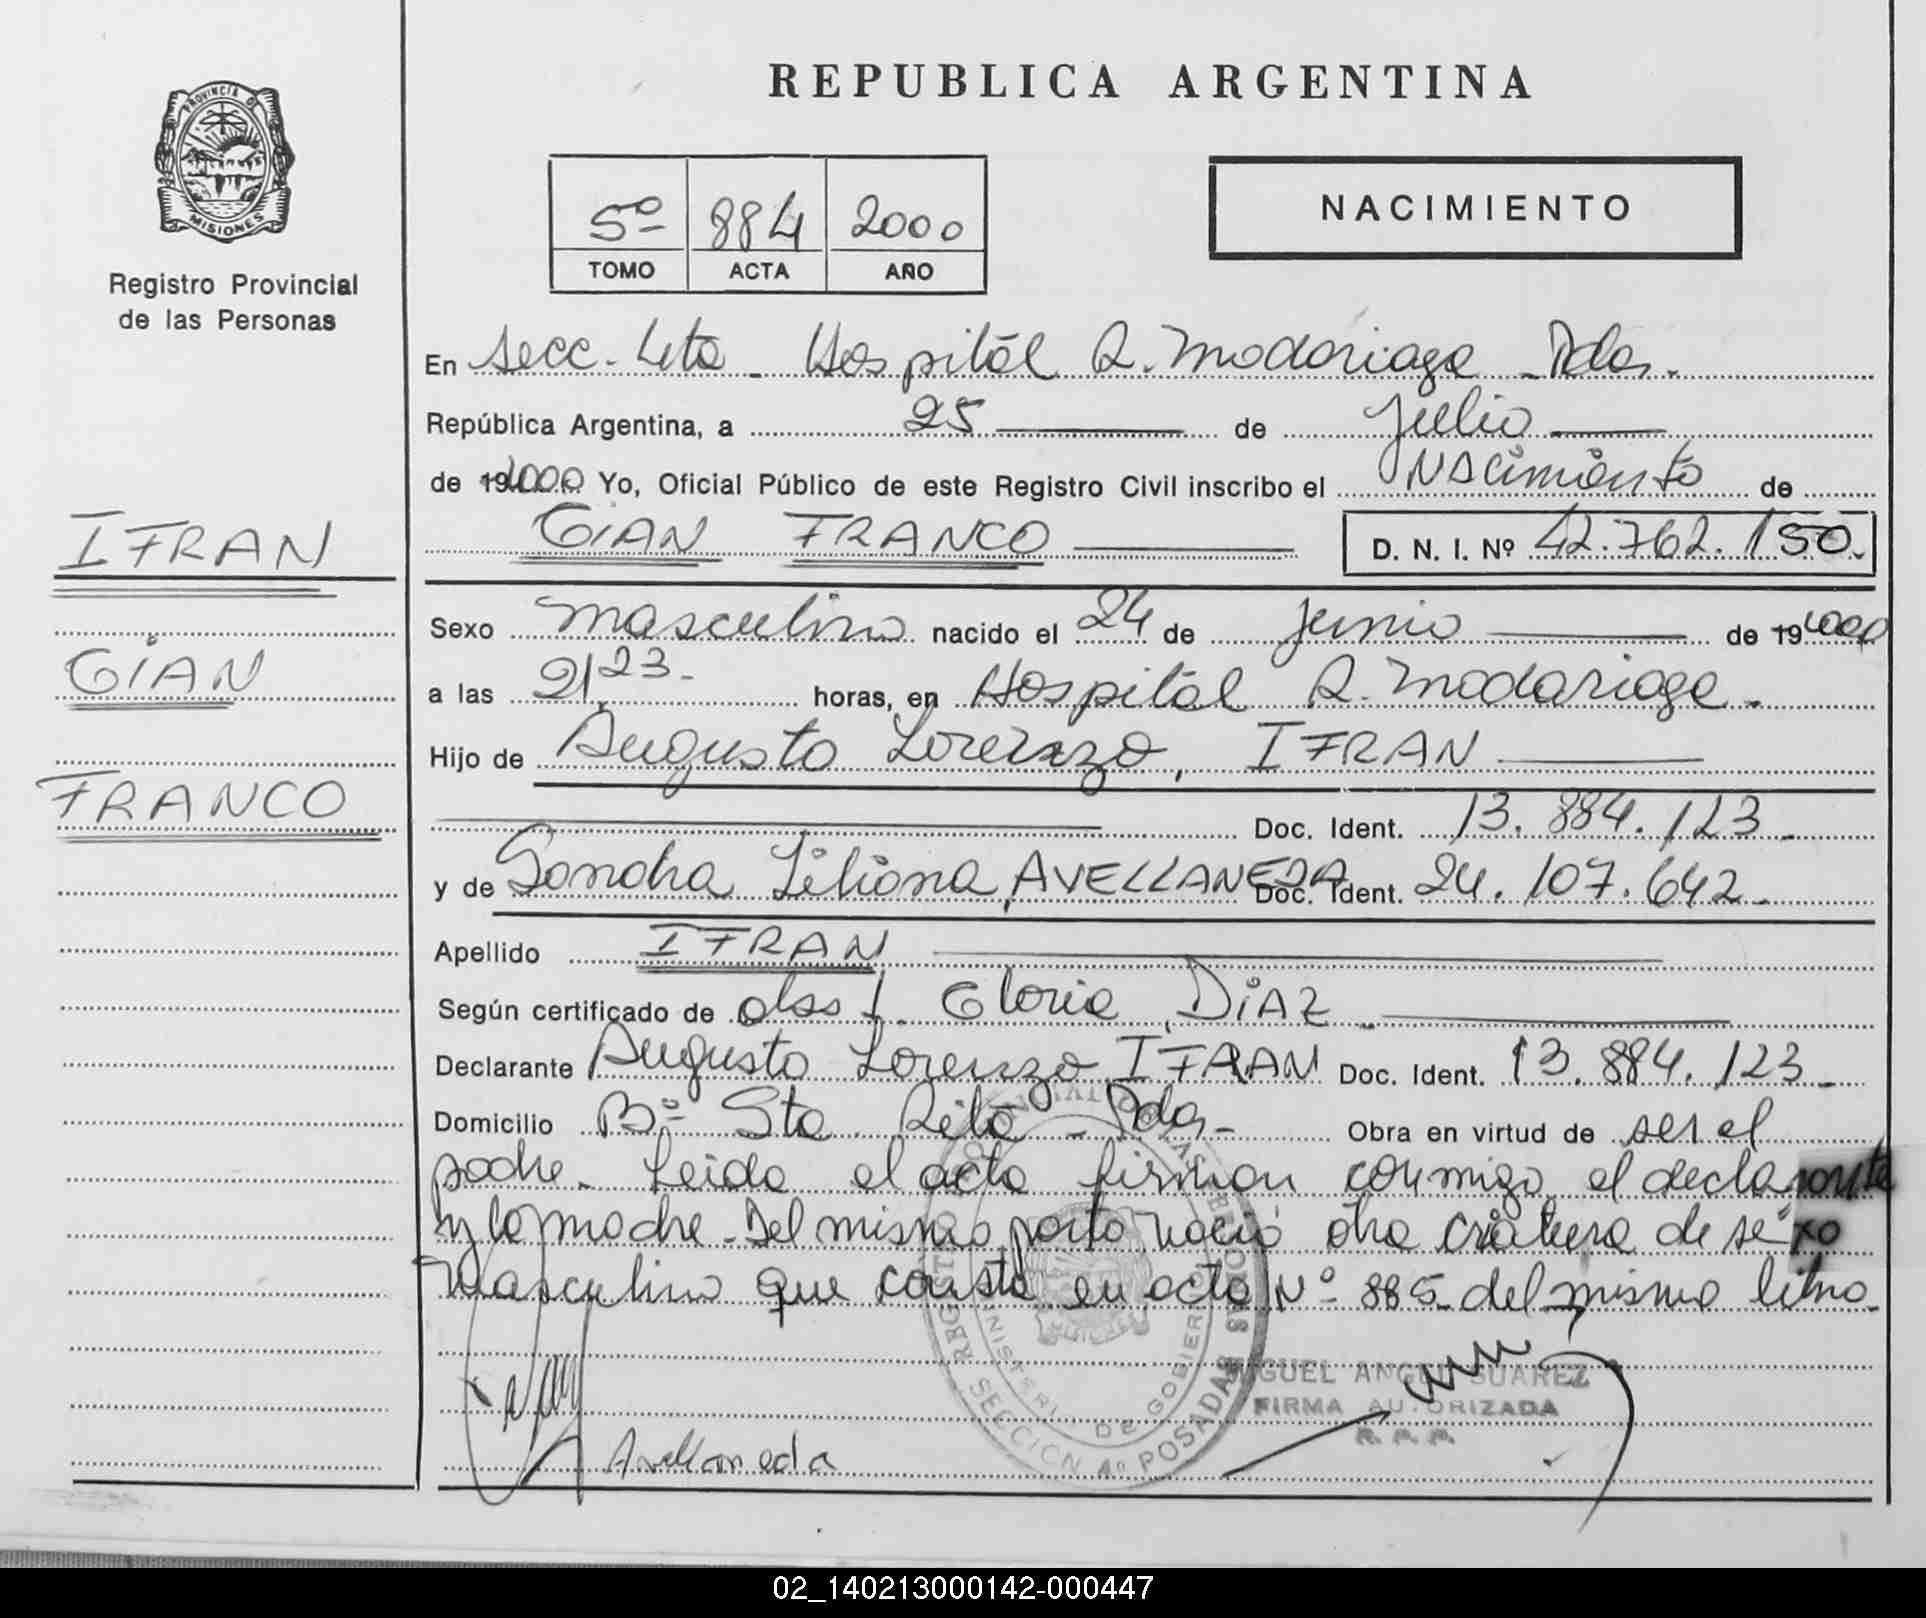 REPUBLICA ARGENTINA
PROVINCIA DE
MISIONES
Registro Provincial
de las Personas
5º 884 2000
TOMO ACTA AÑO
NACIMIENTO
En Secc. 4ta - Hospital R. Madariaga - Pdas.
República Argentina, a 25 de julio
de 19 2000 Yo, Oficial Público de este Registro Civil inscribo el Nacimiento de
GiAN FRANCO D. N. I. Nº 42.762.150.
IFRAN
GiAN
FRANCO
Sexo masculino nacido el 24 de junio de 19 2000
a las 2123- horas, en Hospital R. Madariaga.
Hijo de Augusto Lorenzo, IFRAN
Doc. Ident. 13.884.123-
y de Sandra Liliana, AVELLANEDA Doc. Ident. 24.107.642-
Apellido IFRAN
Según certificado de obst. Gloria, DiAZ
Declarante Augusto Lorenzo, IFRAN Doc. Ident. 13.884.123-
Domicilio Bº Sta. Rita - Pdas- Obra en virtud de ser el
padre. Leida el acta firman conmigo el declarante
y la madre. Del mismo parto nació otra criatura de sexo
masculino que consta en acta Nº 885 del mismo libro.
SECCION 4º POSADAS
MINISTERIO DE GOBIERNO
MIGUEL ANGEL SUAREZ
FIRMA AUTORIZADA
R. P. P.
Avellaneda
02_140213000142-000447